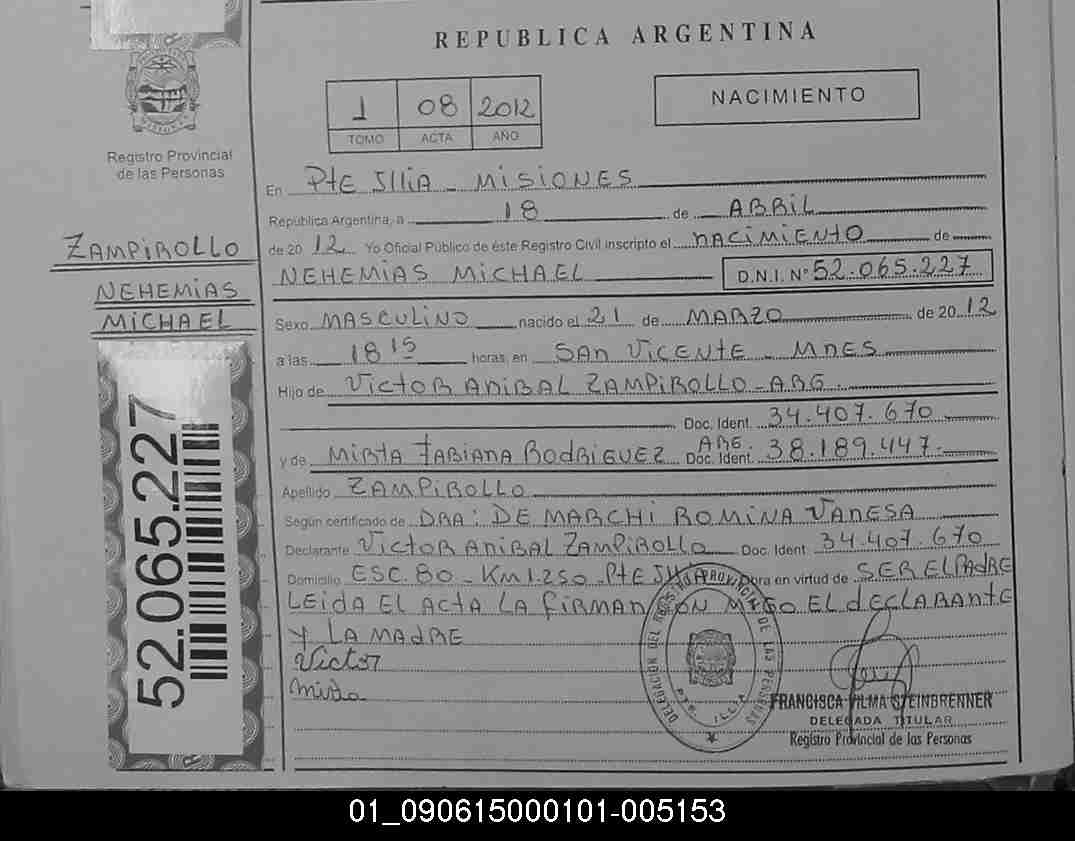 REPUBLICA ARGENTINA
1 08 2012
TOMO ACTA AÑO
NACIMIENTO
Registro Provincial
de las Personas
ZAMPIROLLO
NEHEMIAS
MICHAEL
52.065.227
En Pte Illia - MISIONES
República Argentina, a 18 de ABRIL
de 20 12 Yo Oficial Público de éste Registro Civil inscripto el NACIMIENTO de
NEHEMIAS MICHAEL D.N.I. Nº 52.065.227
Sexo MASCULINO nacido el 21 de MARZO de 20 12
a las 18 15 horas, en SAN VICENTE - MNES
Hijo de VICTOR ANIBAL ZAMPIROLLO - ARG
Doc. Ident. 34.407.670
y de MIRTA FABIANA RODRIGUEZ ARG. Doc. Ident. 38.189.447
Apellido ZAMPIROLLO
Según certificado de DRA: DE MARCHI ROMINA VANESA
Declarante VICTOR ANIBAL ZAMPIROLLO Doc. Ident 34.407.670
Domicilio ESC. 80 - Km 1250 - Pte Illia Obra en virtud de SER EL PADRE
LEIDA EL ACTA LA FIRMAN CON MIGO EL DECLARANTE
Y LA MADRE
Victor
Mirta
DELEGACION DEL REGISTRO PROVINCIAL DE LAS PERSONAS
PTE. ILLIA
FRANCISCA VILMA STEINBRENNER
DELEGADA TITULAR
Registro Provincial de las Personas
01_090615000101-005153